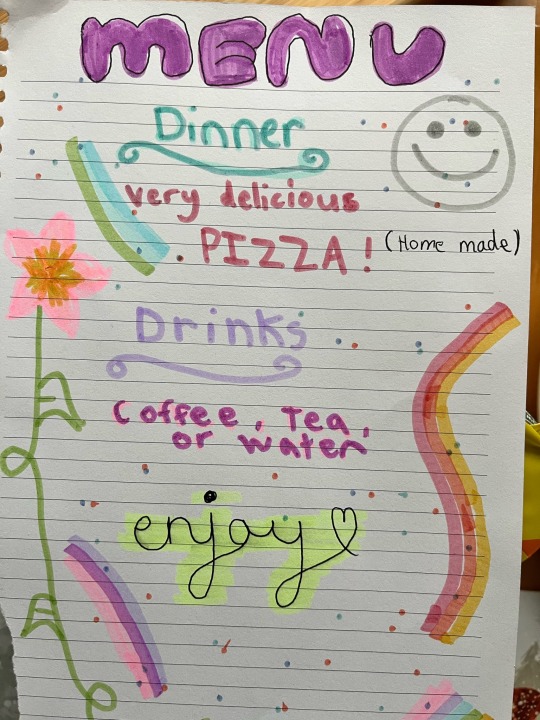 MENU
Dinner
very delicious
PIZZA! (Home made)
Drinks
Coffee, Tea,
or water
enjoy